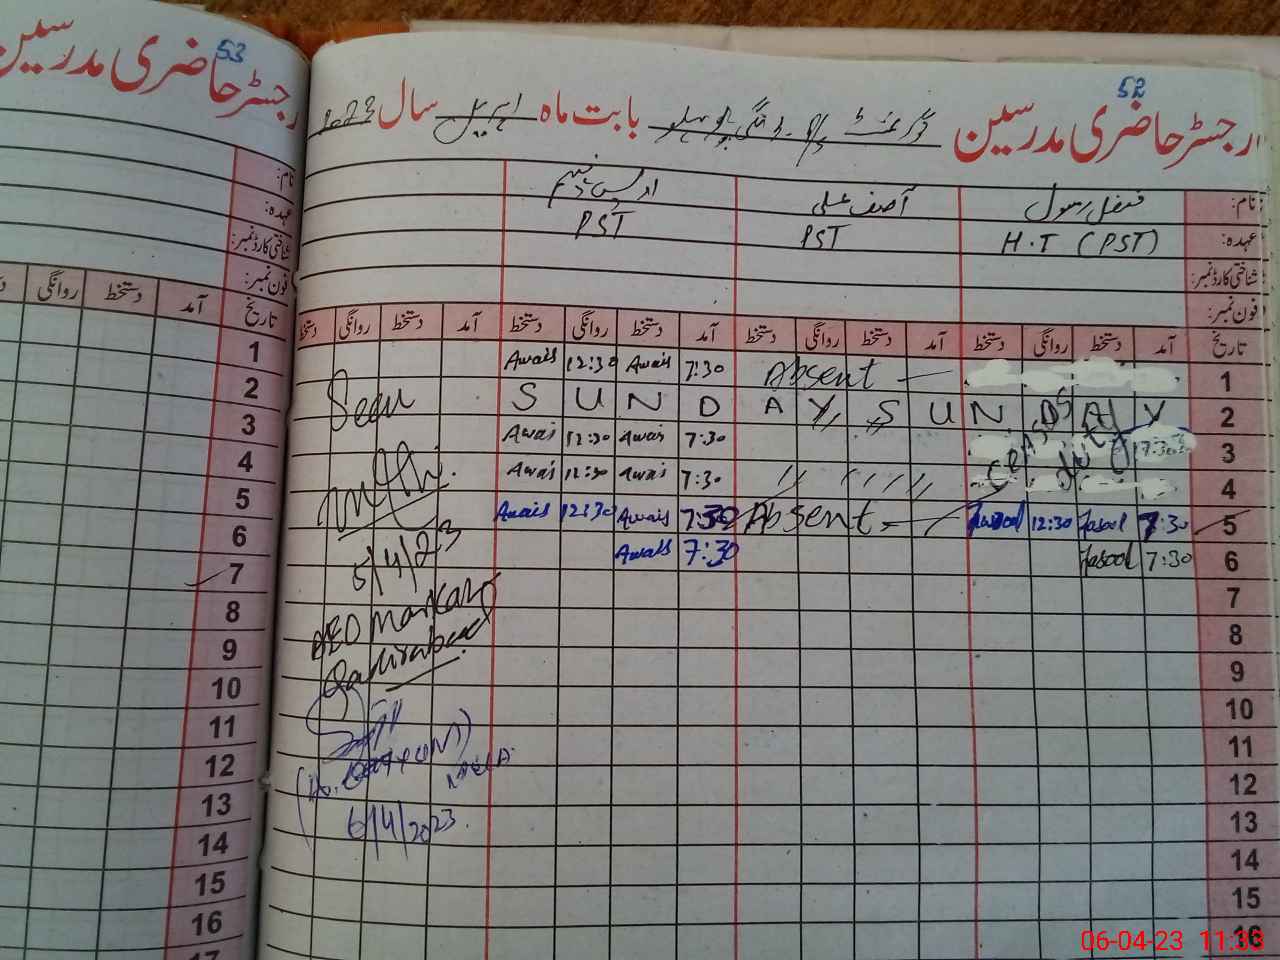 53
رجسٹر حاضری مدرسین
نام:
عہدہ:
شناختی کارڈ نمبر:
فون نمبر:
تاریخ آمد دستخط روانگی
1
2
3
4
5
6
7
8
9
10
11
12
13
14
15
16
17
52
رجسٹر حاضری مدرسین گورنمنٹ بابت ماہ اپریل سال 2023
نام: فضل رسول آصف علی
عہدہ: H.T (PST) PST PST
شناختی کارڈ نمبر:
فون نمبر:
تاریخ آمد دستخط روانگی دستخط آمد دستخط روانگی دستخط آمد دستخط روانگی دستخط آمد روانگی دستخط
Awais 12:30 Awais 7:30 Absent 1
S U N D A Y S U N D A Y 2
Awais 12:30 Awais 7:30 7:30 3
Awais 12:30 Awais 7:30 4
Awais 12:30 Awais 7:30 Absent Rasool 12:30 Rasool 7:30 5
Awais 7:30 Rasool 7:30 6
7
8
9
10
11
12
13
14
15
16
Seen
5/4/23
AEO Markaz
Qadirabad
6/4/2023
06-04-23 11:33